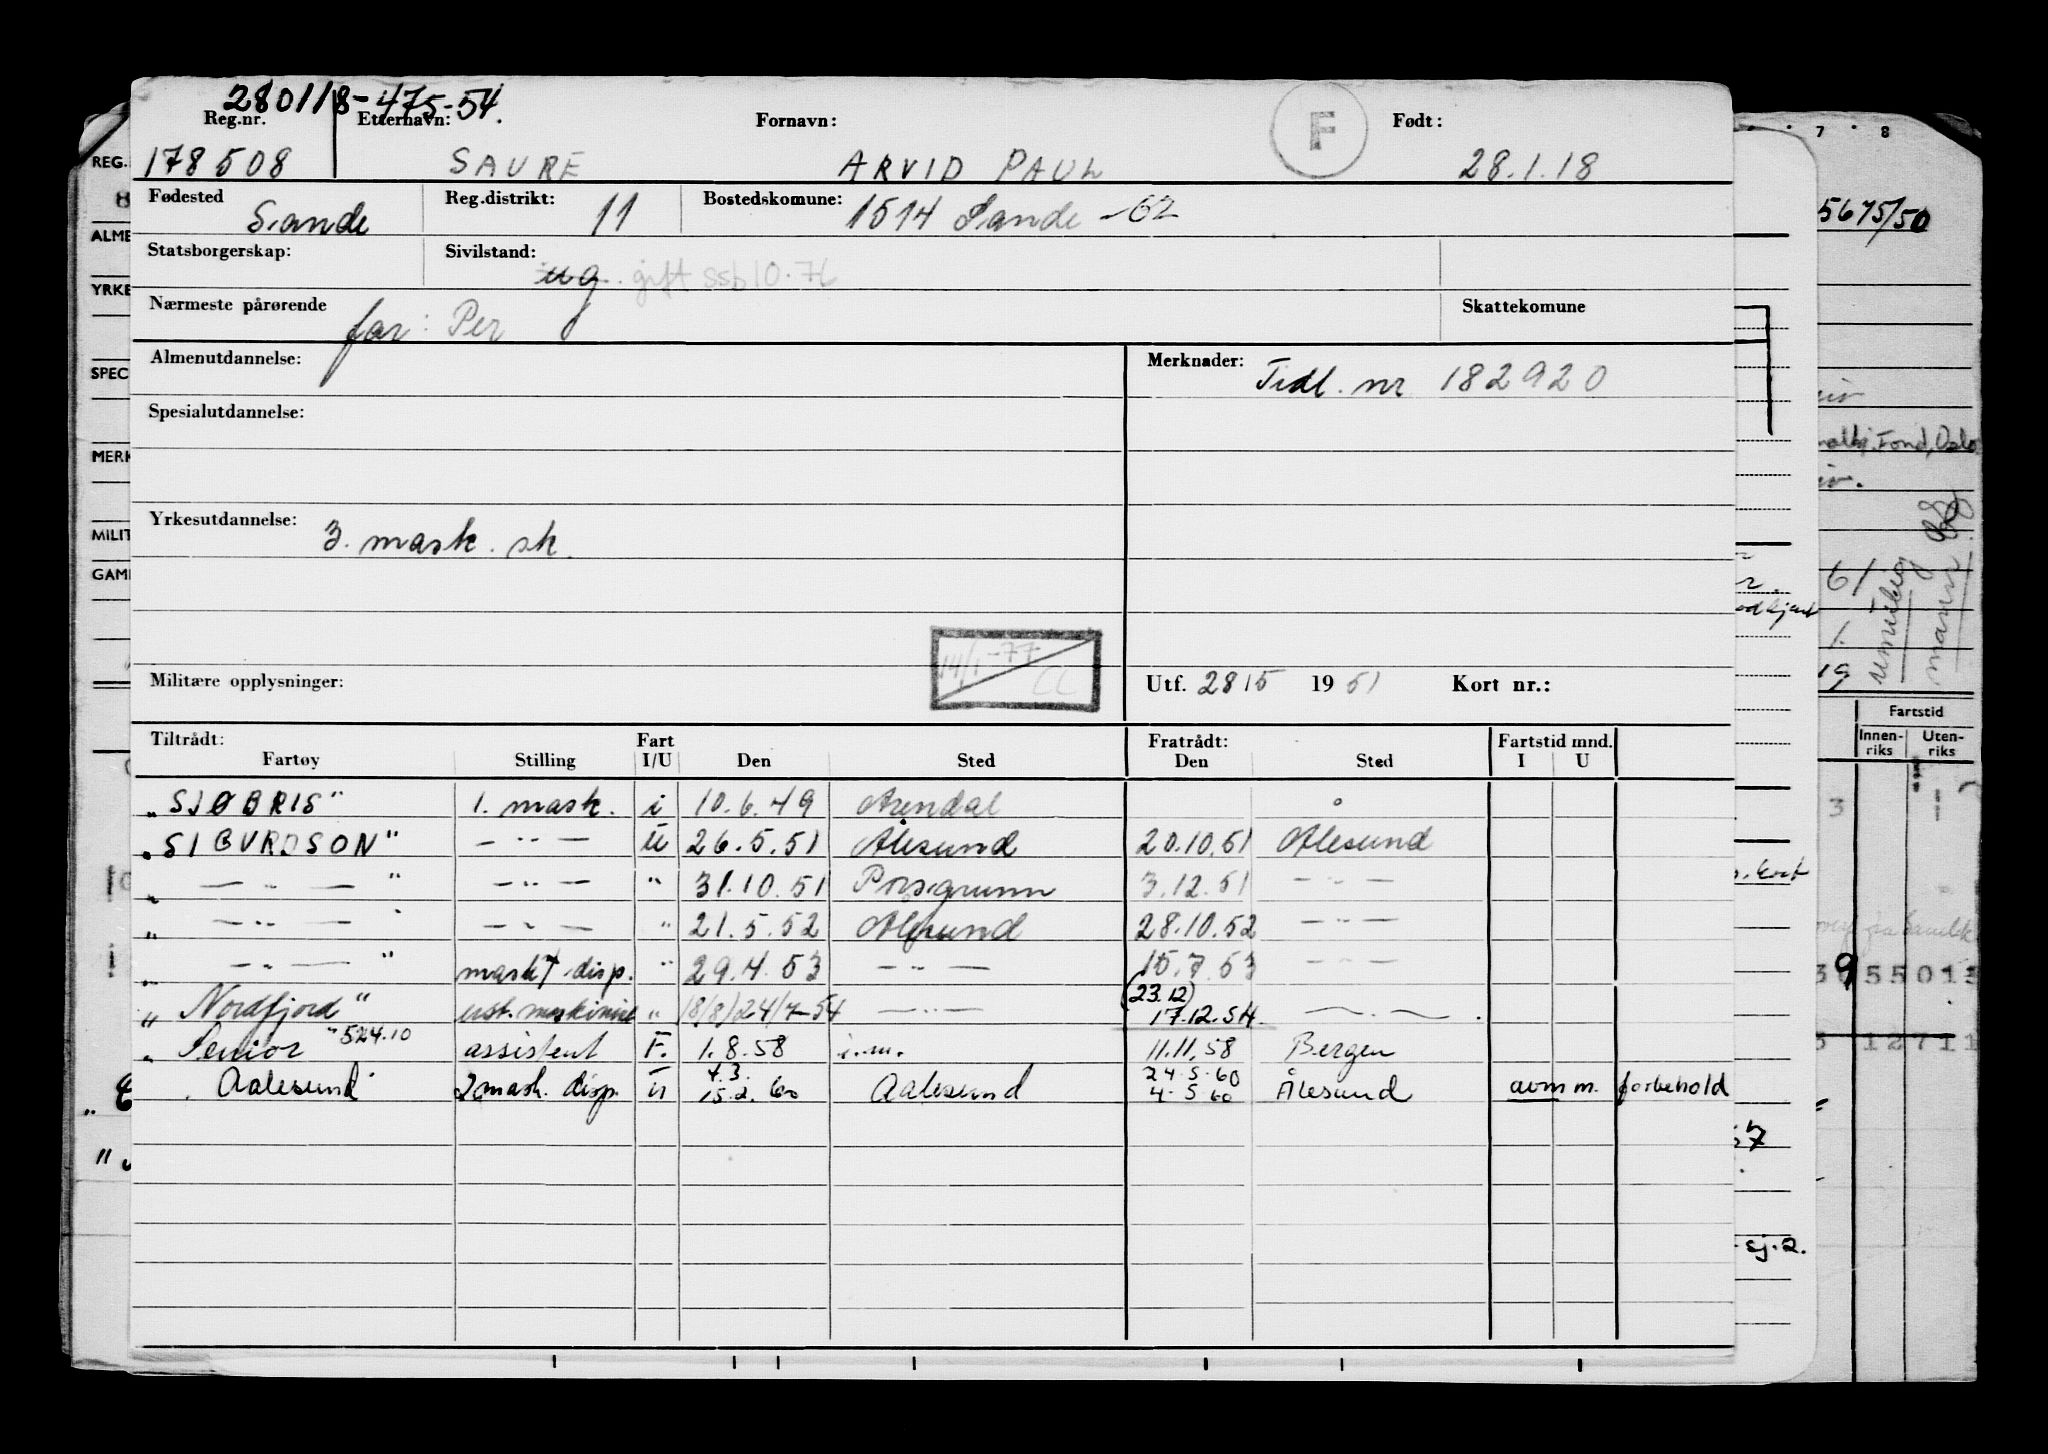 280118-475-54.
Reg.nr. Etternavn: Fornavn: F Født:
178508 SAURE ARVID PAUL 28.1.18
Fødested Sande Reg.distrikt: 11 Bostedskomune: 1514 Sande -62
Statsborgerskap: Sivilstand: ug. gift ssb 10.76
Nærmeste pårørende far: Per Skattekomune
Almenutdannelse: Merknader: Tidl. nr 182920
Spesialutdannelse:
Yrkesutdannelse: 3. mask. sk.
14/1-77 CL
Militære opplysninger: Utf. 2815 1951 Kort nr.:
Tiltrådt: Fart Fratrådt: Fartstid mnd.
Fartøy Stilling I/U Den Sted Den Sted I U
"SJØBRIS" 1. mask. i 10.6.49 Arendal
"SIGURDSON" - " - u 26.5.51 Ålesund 20.10.51 Ålesund
" - " - " - " - " 31.10.51 Porsgrunn 3.12.51 - " -
" - " - " - " - " 21.5.52 Ålesund 28.10.52 - " -
" - " - " mask. disp. " 29.4.53 - " - 15.7.53 - " -
(23.12)
"Nordfjord" ust. maskinist " (8/8) 24/7-54 - " - 17.12.54 - " -
"Senior" 524.10 assistent F. 1.8.58 i.m. 11.11.58 Bergen
4.3. 24.5.60
"Aalesund" 2 mask. disp. u 15.2.60 Aalesund 4.5.60 Ålesund avm m. forbehold
REG.
ALME
YRKE
SPEC
MERK
MILIT
GAM
7 8
5675/50
Fond, Oslo
61
19
Fartstid
Innen-riks Uten-riks
3
955013
12711
57
sj.2.